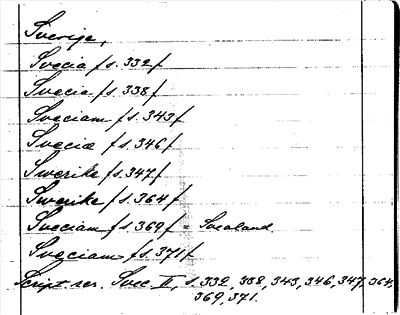 Sverige,
Svecia /s. 332/
Svecia /s. 338/
Sveciam /s. 343/
Svecia /s. 346/
Swerike /s. 347/
Swerike /s. 364/
Sveciam /s. 369/ = Svealand.
Sveciam /s. 371/
Script. rer. Svec. II, s. 332, 338, 343, 346, 347, 364,
369, 371.